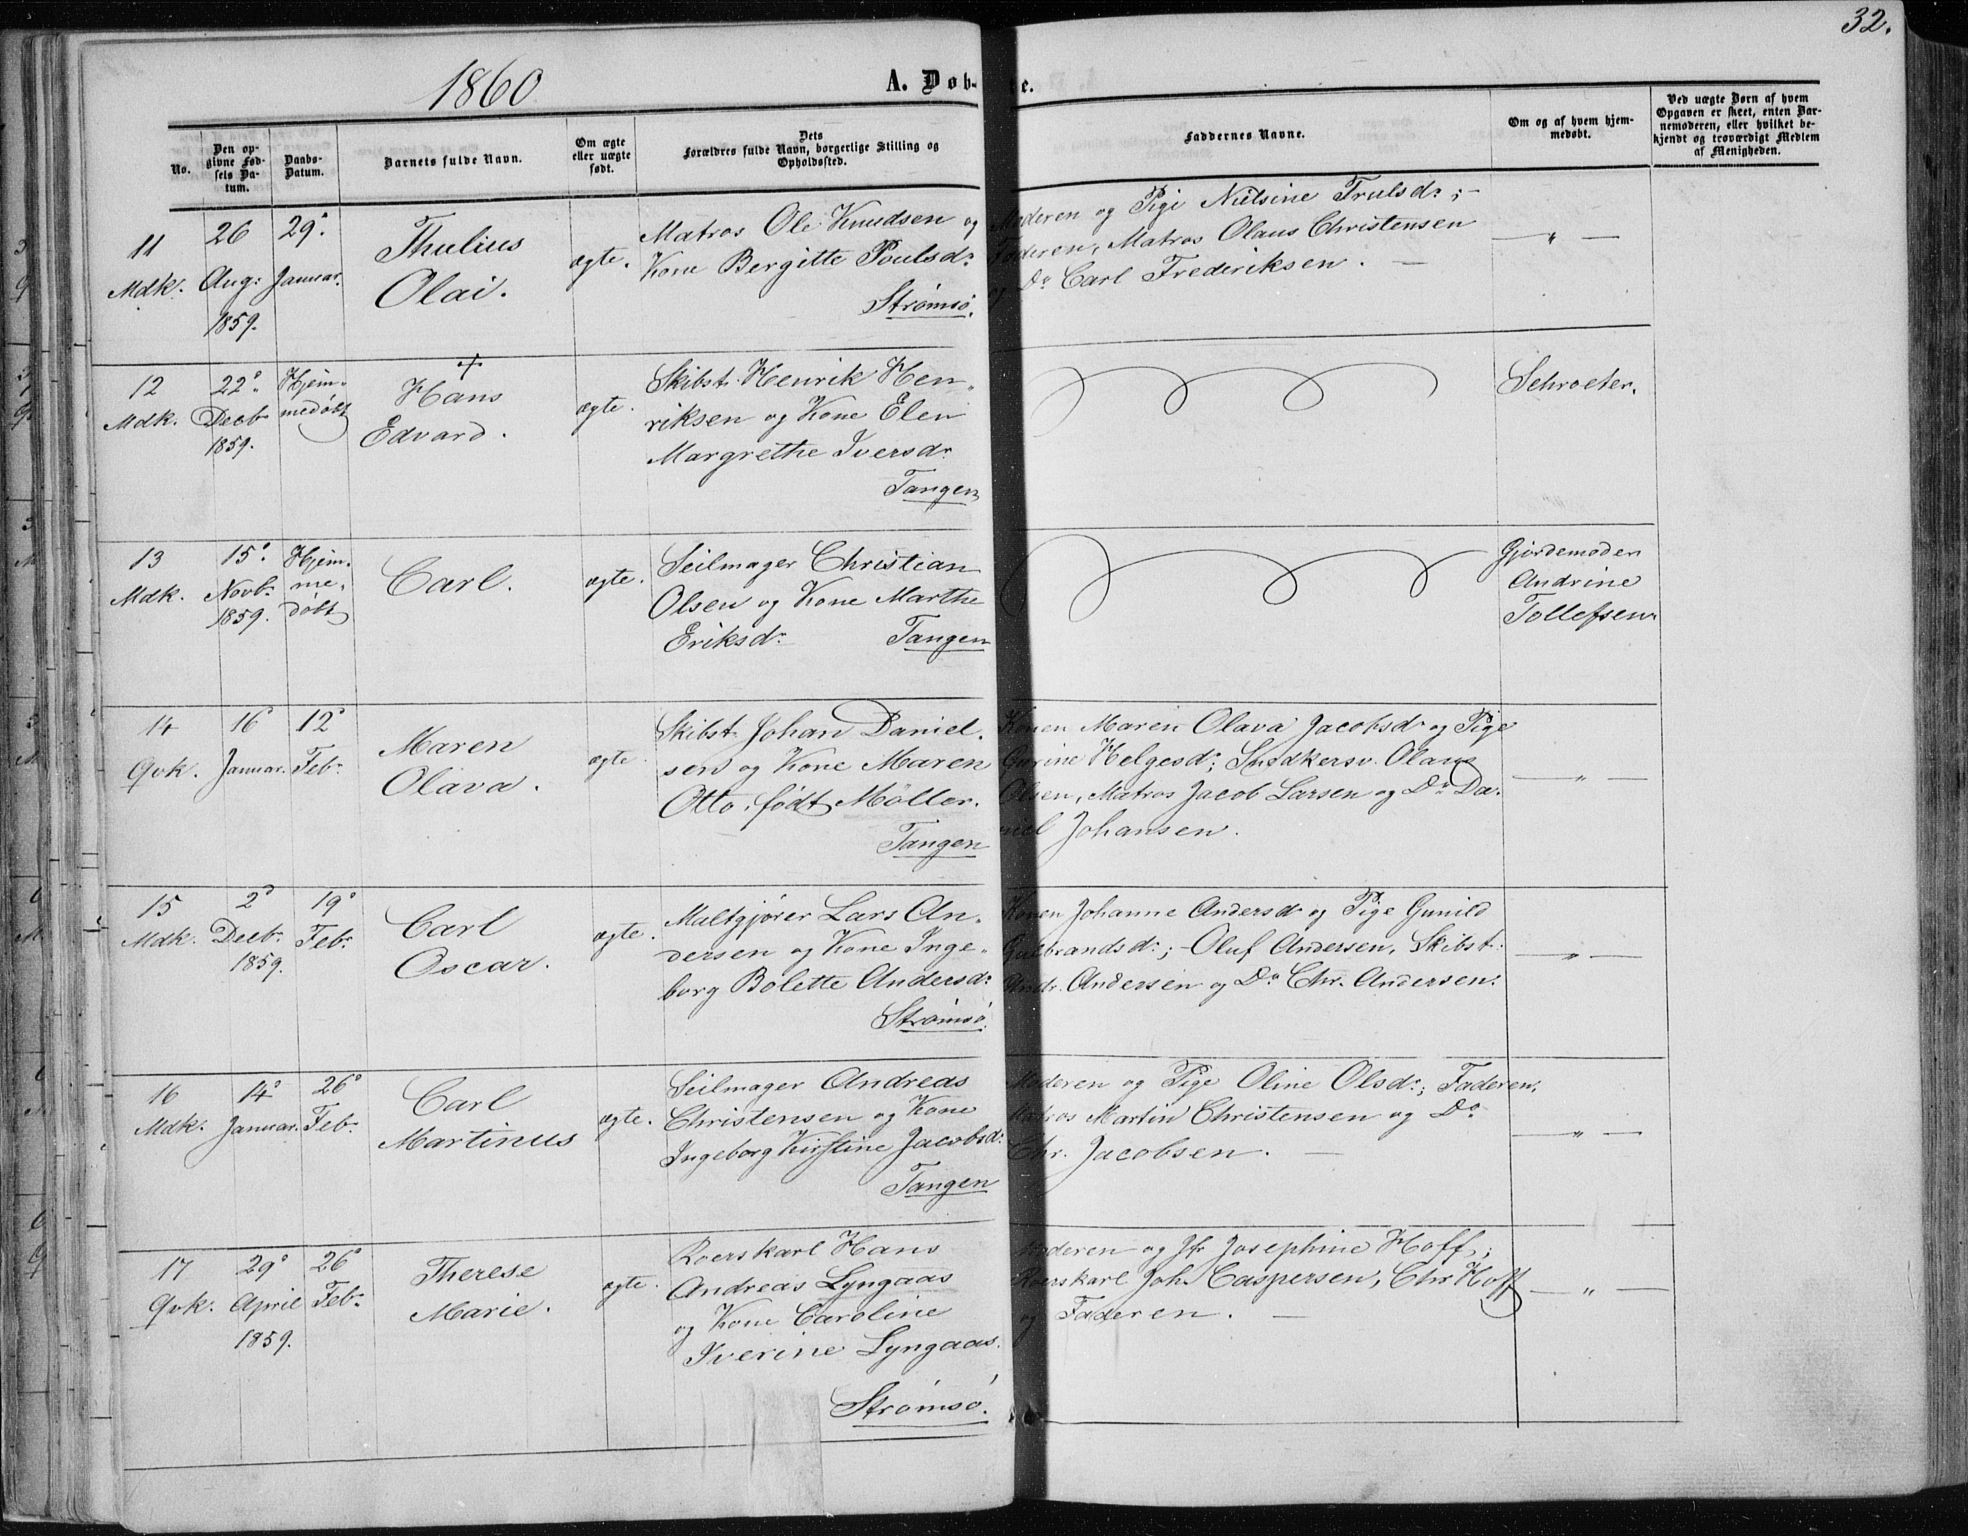 32.
1860
A. Døb- te.
No.
Den op-
givne Fød-
sels Da-
tum.
Daabs-
Datum.
Barnets fulde Navn.
Om ægte
eller uægte
født.
Dets
Forældres fulde Navn, borgerlige Stilling og
Opholdssted.
Faddernes Navne.
Om og af hvem hjem-
medøbt.
Ved uægte Børn af hvem
Opgaven er skeet, enten Bar-
nemoderen, eller hvilket be-
kjendt og troværdigt Medlem
af Menigheden.
11
Mdk.
26
Aug:
1859.
29.
Januar.
Thulius
Olai.
ægte.
Matros Ole Knudsen og
Kone Bergitte Poulsdr
Strømsö.
Moderen og Pige Nielsine Trulsdr; -
Faderen, Matros Olaus Christensen
og Do Carl Frederiksen. -
— " —
12
Mdk.
22.
Decbr
1859.
Hjem-
medöbt
+
Hans
Edvard.
ægte.
Skibst. Henrik Hen-
riksen og Kone Elen
Margrethe Iversdr
Tangen
Schroeter.
13
Mdk.
15.
Novbr.
1859.
Hjem-
me-
döbt
Carl.
ægte.
Seilmager Christian
Olsen og Kone Marthe
Eriksdr Tangen
Gjordemoder
Andrine
Tollefsen
14
Qvk.
16
Januar.
12
Febr.
Maren
Olava.
ægte.
Skibst. Johan Daniel-
sen og Kone Maren
Otto, født Möller.
Tangen
Konen Maren Olava Jacobsdr og Pige
Gurine Helgesdr; Snedkersv. Olaus
Olsen, Matros Jacob Larsen og Do Da-
niel Johansen.
— " —
15
Mdk.
2
Decbr.
1859.
19
Febr
Carl
Oscar.
ægte.
Maltgjører Lars An-
dersen og Kone Inge-
borg Bolette Andersdr
Strømsö.
Konen Johanne Andersdr og Pige Gunild
Gulbrandsdr; - Oluf Andersen, Skibst.
Andr. Andersen og Do Chr. Andersen.
— " —
16
Mdk.
14
Januar.
26
Febr.
Carl
Martinus
ægte.
Seilmager Andreas
Christensen og Kone
Ingeborg Kirstine Jacobsdr
Tangen
Moderen og Pige Oline Olsdr; Faderen,
Matros Martin Christensen og Do
Chr. Jacobsen. -
— " —
17
Qvk.
29
April
1859.
26
Febr.
Therese
Marie.
ægte.
Roerskarl Hans
Andreas Lyngaas
og Kone Caroline
Iverine Lyngaas.
Strømsö.
Moderen og Jfr Josephine Hoff;
Roerskarl Joh. Caspersen, Chr Hoff
og Faderen. -
— " —